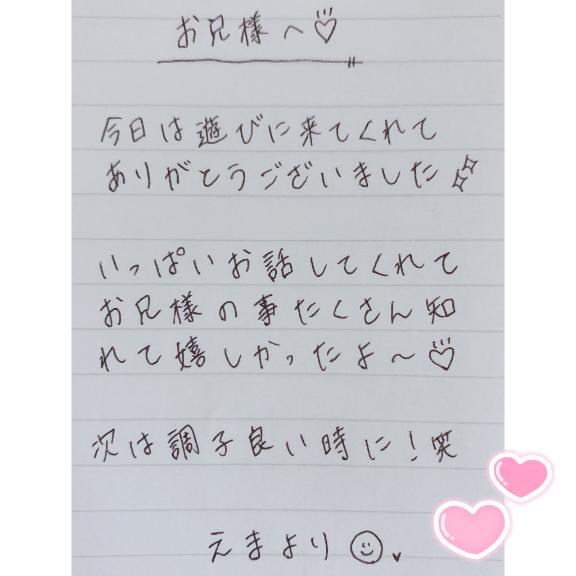 お兄様へ♡
今日は遊びに来てくれて
ありがとうございました✨
いっぱいお話してくれて
お兄様の事たくさん知
れて嬉しかったよ〜♡
次は調子良い時に!笑
えまより☺♥